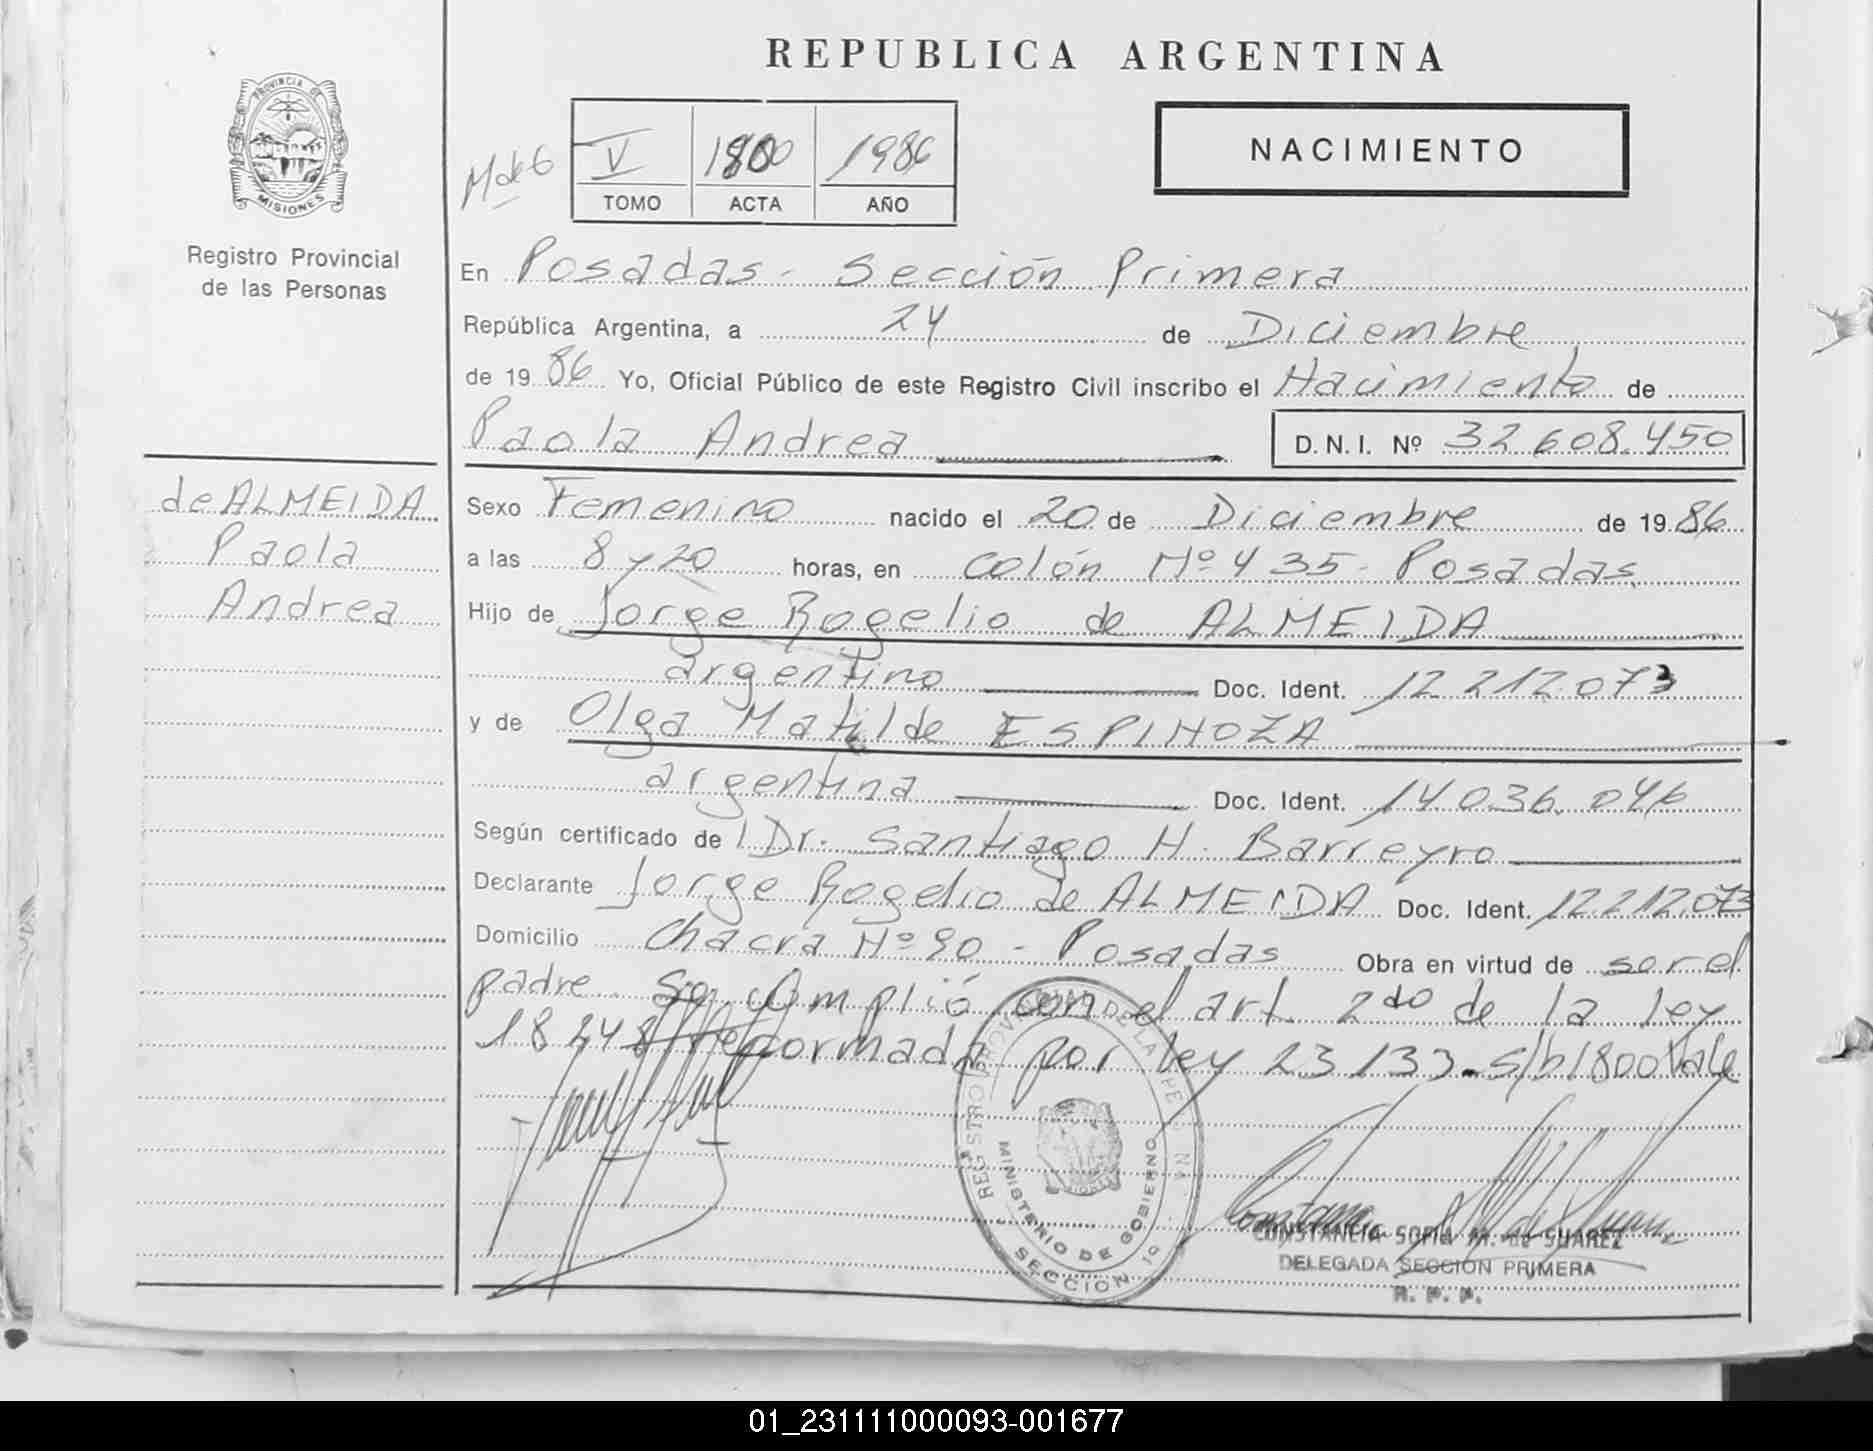 REPUBLICA ARGENTINA
PROVINCIA DE
MISIONES
Registro Provincial
de las Personas
V 1800 1986
TOMO ACTA AÑO
NACIMIENTO
En Posadas - Sección Primera
República Argentina, a 24 de Diciembre
de 1986 Yo, Oficial Público de este Registro Civil inscribo el Nacimiento de
Paola Andrea D.N.I. Nº 32.608.450
de ALMEIDA
Paola
Andrea
Sexo Femenino nacido el 20 de Diciembre de 1986
a las 8 y 20 horas, en Colón Nº 435 - Posadas
Hijo de Jorge Rogelio de ALMEIDA
argentino Doc. Ident. 12.212.073
y de Olga Matilde ESPINOZA
argentina Doc. Ident. 14.036.046
Según certificado de Dr. Santiago H. Barreyro
Declarante Jorge Rogelio de ALMEIDA Doc. Ident. 12.212.073
Domicilio Chacra Nº 90 - Posadas Obra en virtud de ser el
padre. Se cumplió con el art. 2do de la ley
18.248 reformada por ley 23.133. s/b 1800 Vale
REGISTRO PROVINCIAL DE LAS PERSONAS
MINISTERIO DE GOBIERNO
SECCION 1º
CONSTANCIA SOFIA M. de SUAREZ
DELEGADA SECCION PRIMERA
R. P. P.
01_231111000093-001677